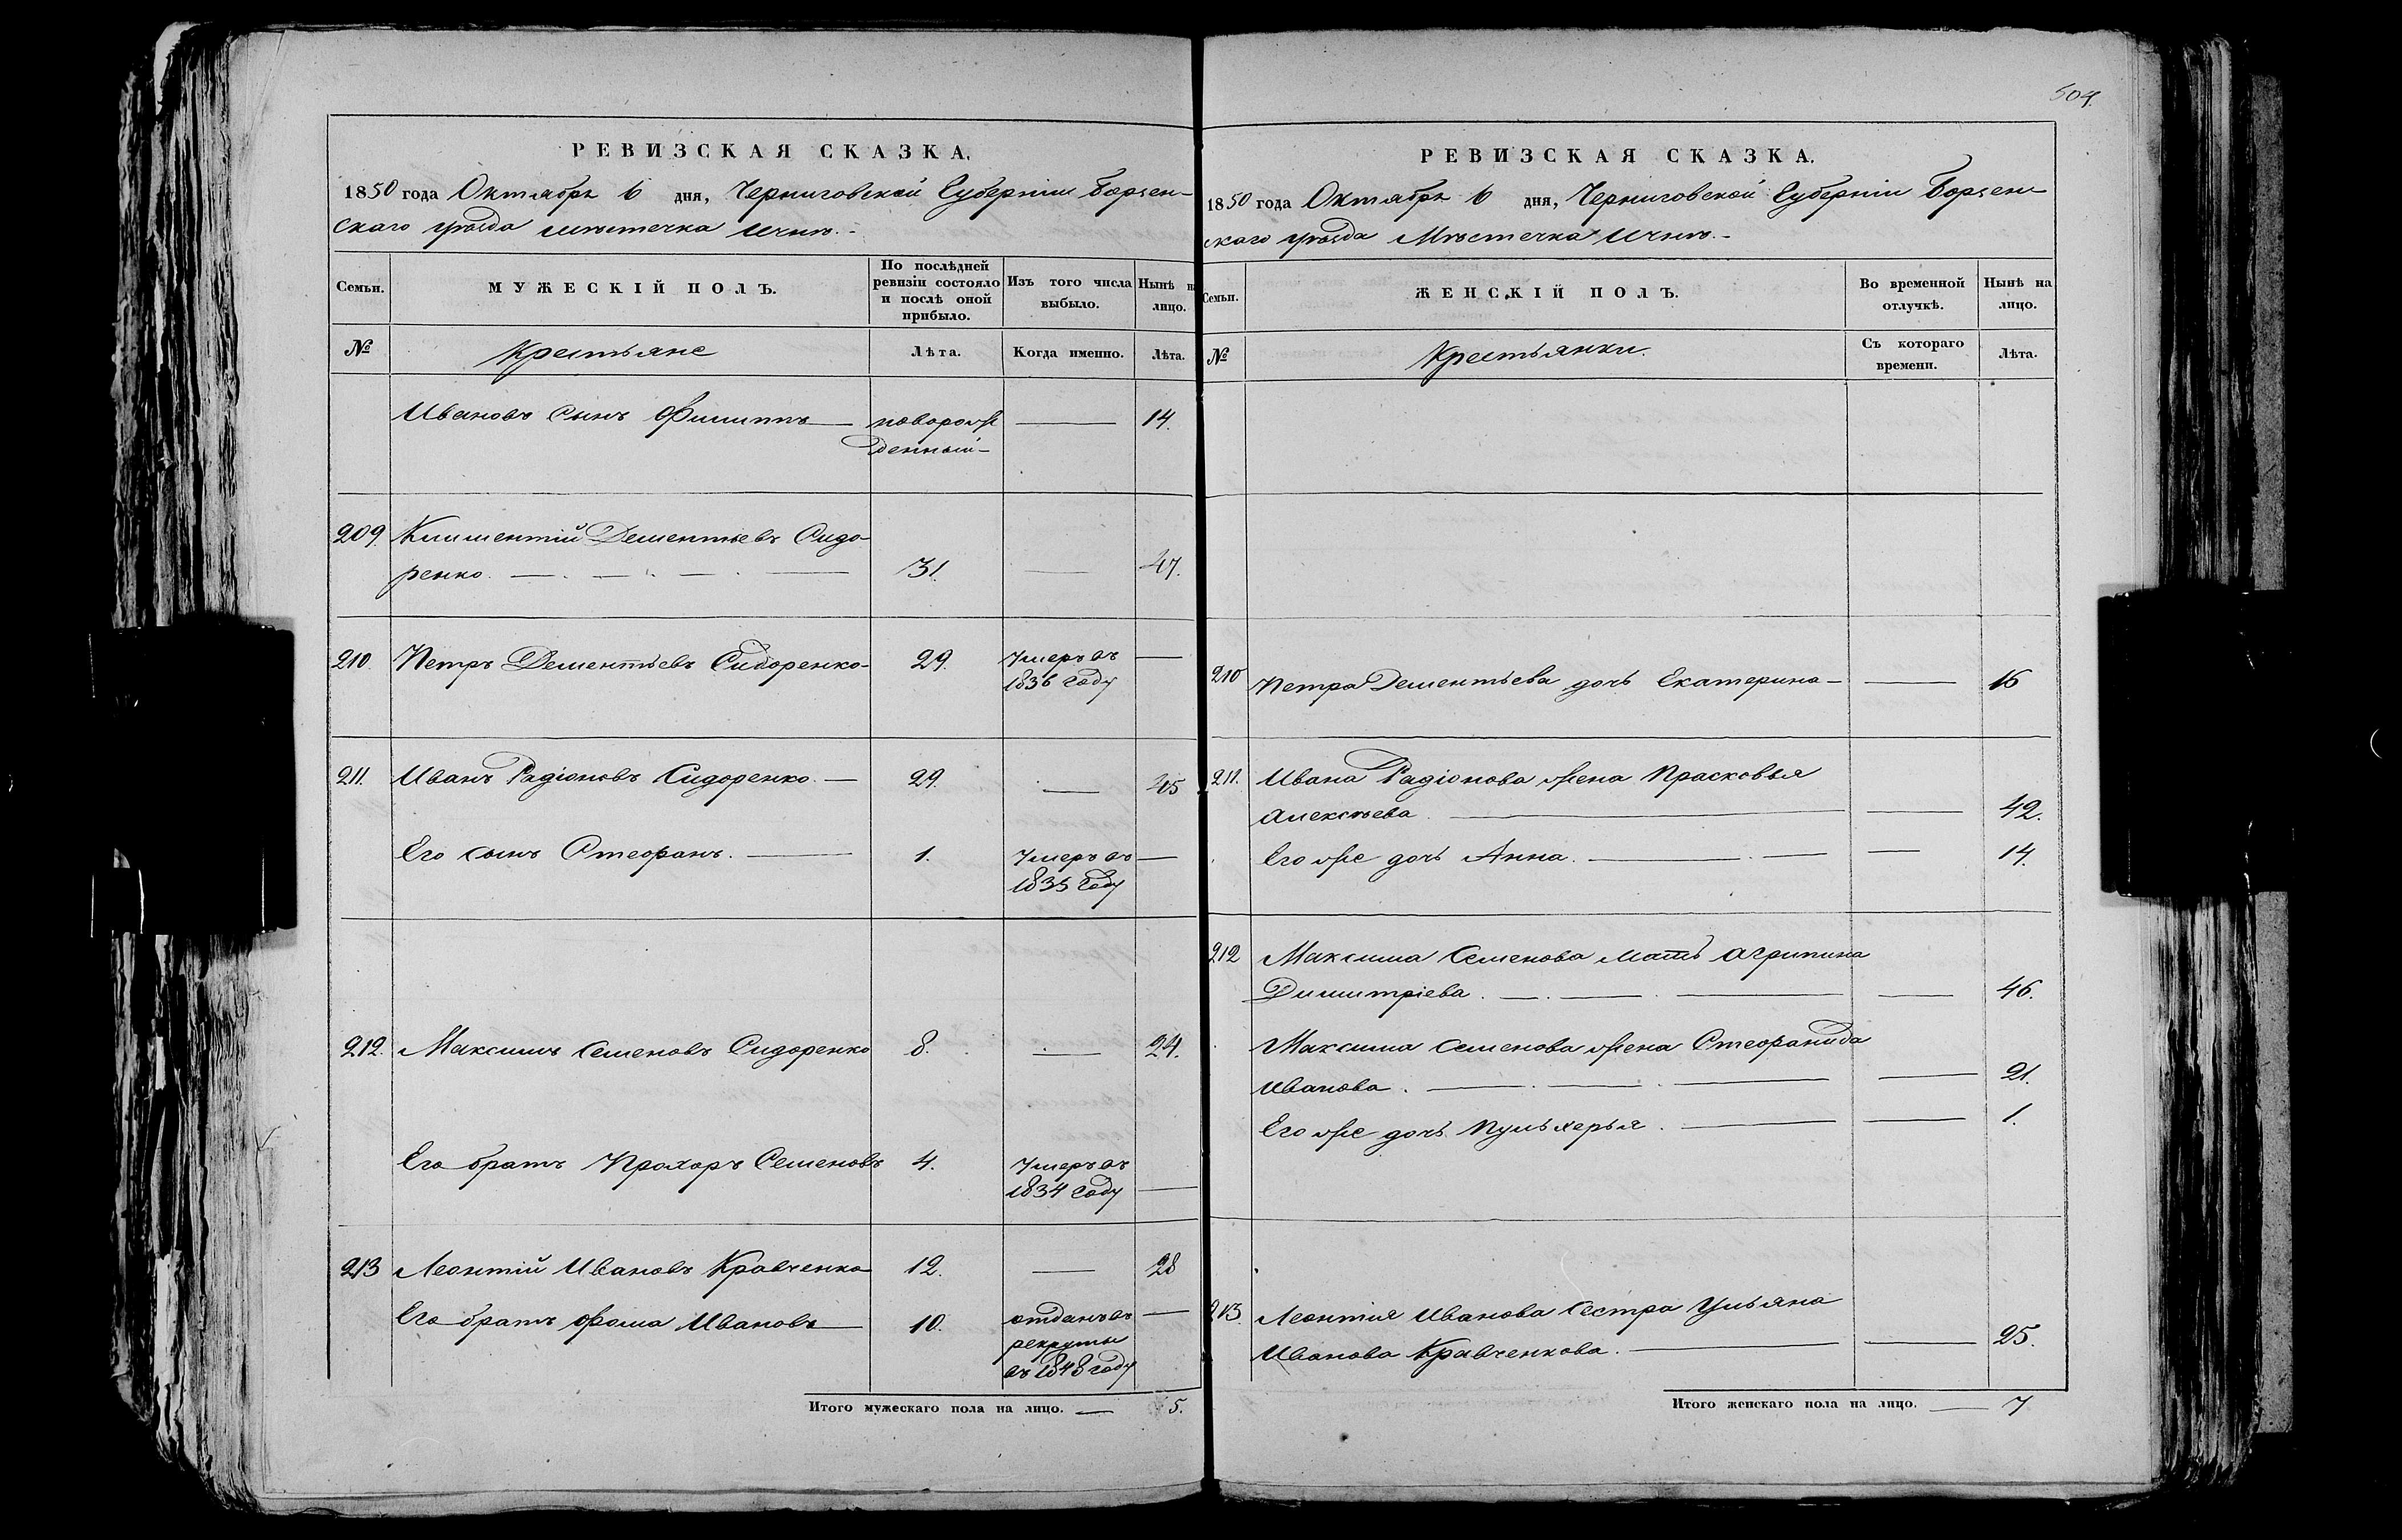 504.
РЕВИЗСКАЯ СКАЗКА.
1850 года Октября 6 дня, Черниговской Губерніи Борзен-
скаго уѣзда мѣстечка Ичнѣ.-
Семьи.
МУЖЕСКІЙ ПОЛЪ.
По послѣдней ревизіи состояло и послѣ оной прибыло.
Изъ того числа выбыло.
Нынѣ на лицо.
№
Крестьяне
Лѣта.
Когда именно.
Лѣта.
Ивановъ Сынъ Филиппъ — новорож — 14.
денный-
209. Климентий Дементьевъ Сидо-
ренко. — 31. — 47.
210. Петръ Дементьевъ Сидоренко- 29. Умеръ въ —
1836 Году
211. Иванъ Радіоновъ Сидоренко. — 29. — 45
Его сынъ Стефанъ. — 1. Умеръ въ —
1835 Году
212. Максимъ Семеновъ Сидоренко 8. — 24.
Его братъ Прохоръ Семеновъ 4. Умеръ въ
1834 Году —
213 Леонтій Ивановъ Кравченко 12. — 28
Его братъ Фома Ивановъ 10. отданъ въ —
рекруты
въ 1848 году
Итого мужескаго пола на лицо. — 5.
РЕВИЗСКАЯ СКАЗКА.
1850 года Октября 6 дня, Черниговской Губерніи Борзен-
скаго уѣзда Мѣстечка Ичнѣ.-
Семьи.
ЖЕНСКІЙ ПОЛЪ.
Во временной отлучкѣ.
Нынѣ на лицо.
№
Крестьянки.
Съ котораго времени.
Лѣта.
210 Петра Дементьева дочь Екатерина — — 16
211. Ивана Радіонова жена Прасковья
Алексѣева. — — 42.
Его же дочь Анна. — — 14.
212 Максима Семенова мать Агрипина
Димитріева. — — 46.
Максима Семенова жена Стефанида
Иванова. — — 21.
Его же дочь Пульхерья. — — 1.
213. Леонтія Иванова сестра Ульяна
Иванова Кравченкова. — — 25.
Итого женскаго пола на лицо. — 7